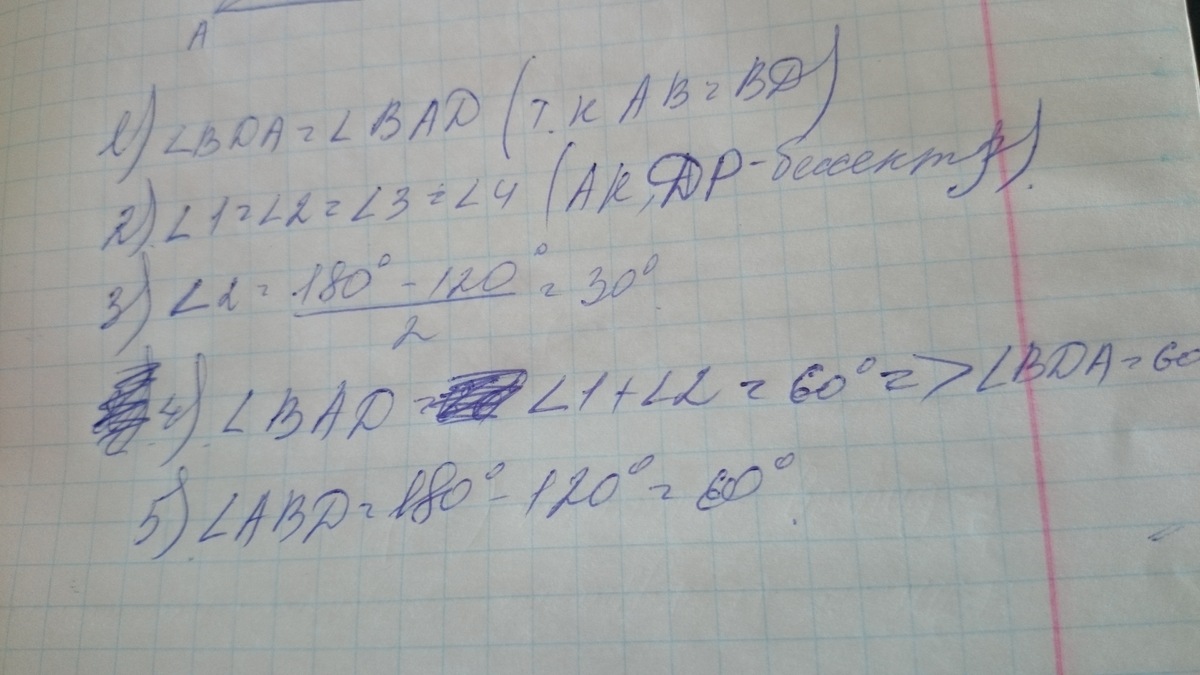 A
1) ∠BDA = ∠BAD (т.к AB = BD)
2) ∠1 = ∠2 = ∠3 = ∠4 (AK, DP - биссектр).
3) ∠2 = (180° - 120°)/2 = 30°.
4) ∠BAD = ∠1 + ∠2 = 60° => ∠BDA = 60
5) ∠ABD = 180° - 120° = 60°.